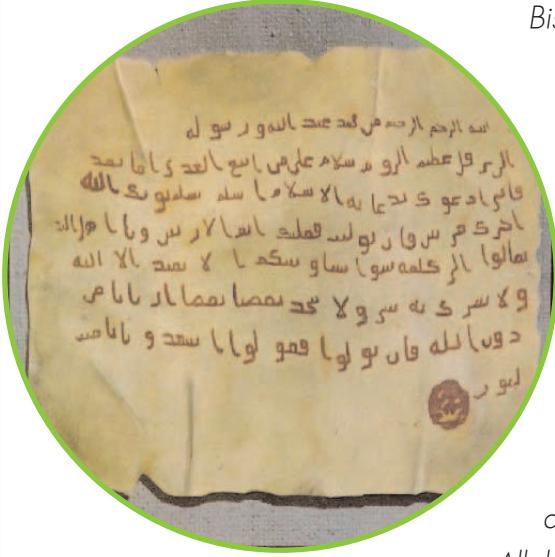 Bis
الله الرحمن الرحيم من محمد عبد الله ورسوله
الى هرقل عظيم الروم سلام على من اتبع الهدى اما بعد
فانى ادعوك بدعاية الاسلام اسلم تسلم يوتك الله
اجرك مرتين فان توليت فعليك اثم ويا اهل
تعالوا الى كلمة سوا بيننا وبينكم الا نعبد الا الله
ولا نشرك به ولا يتخذ بعضنا بعضا اربابا من
دون الله فان تولوا فقولوا اشهدوا بانا